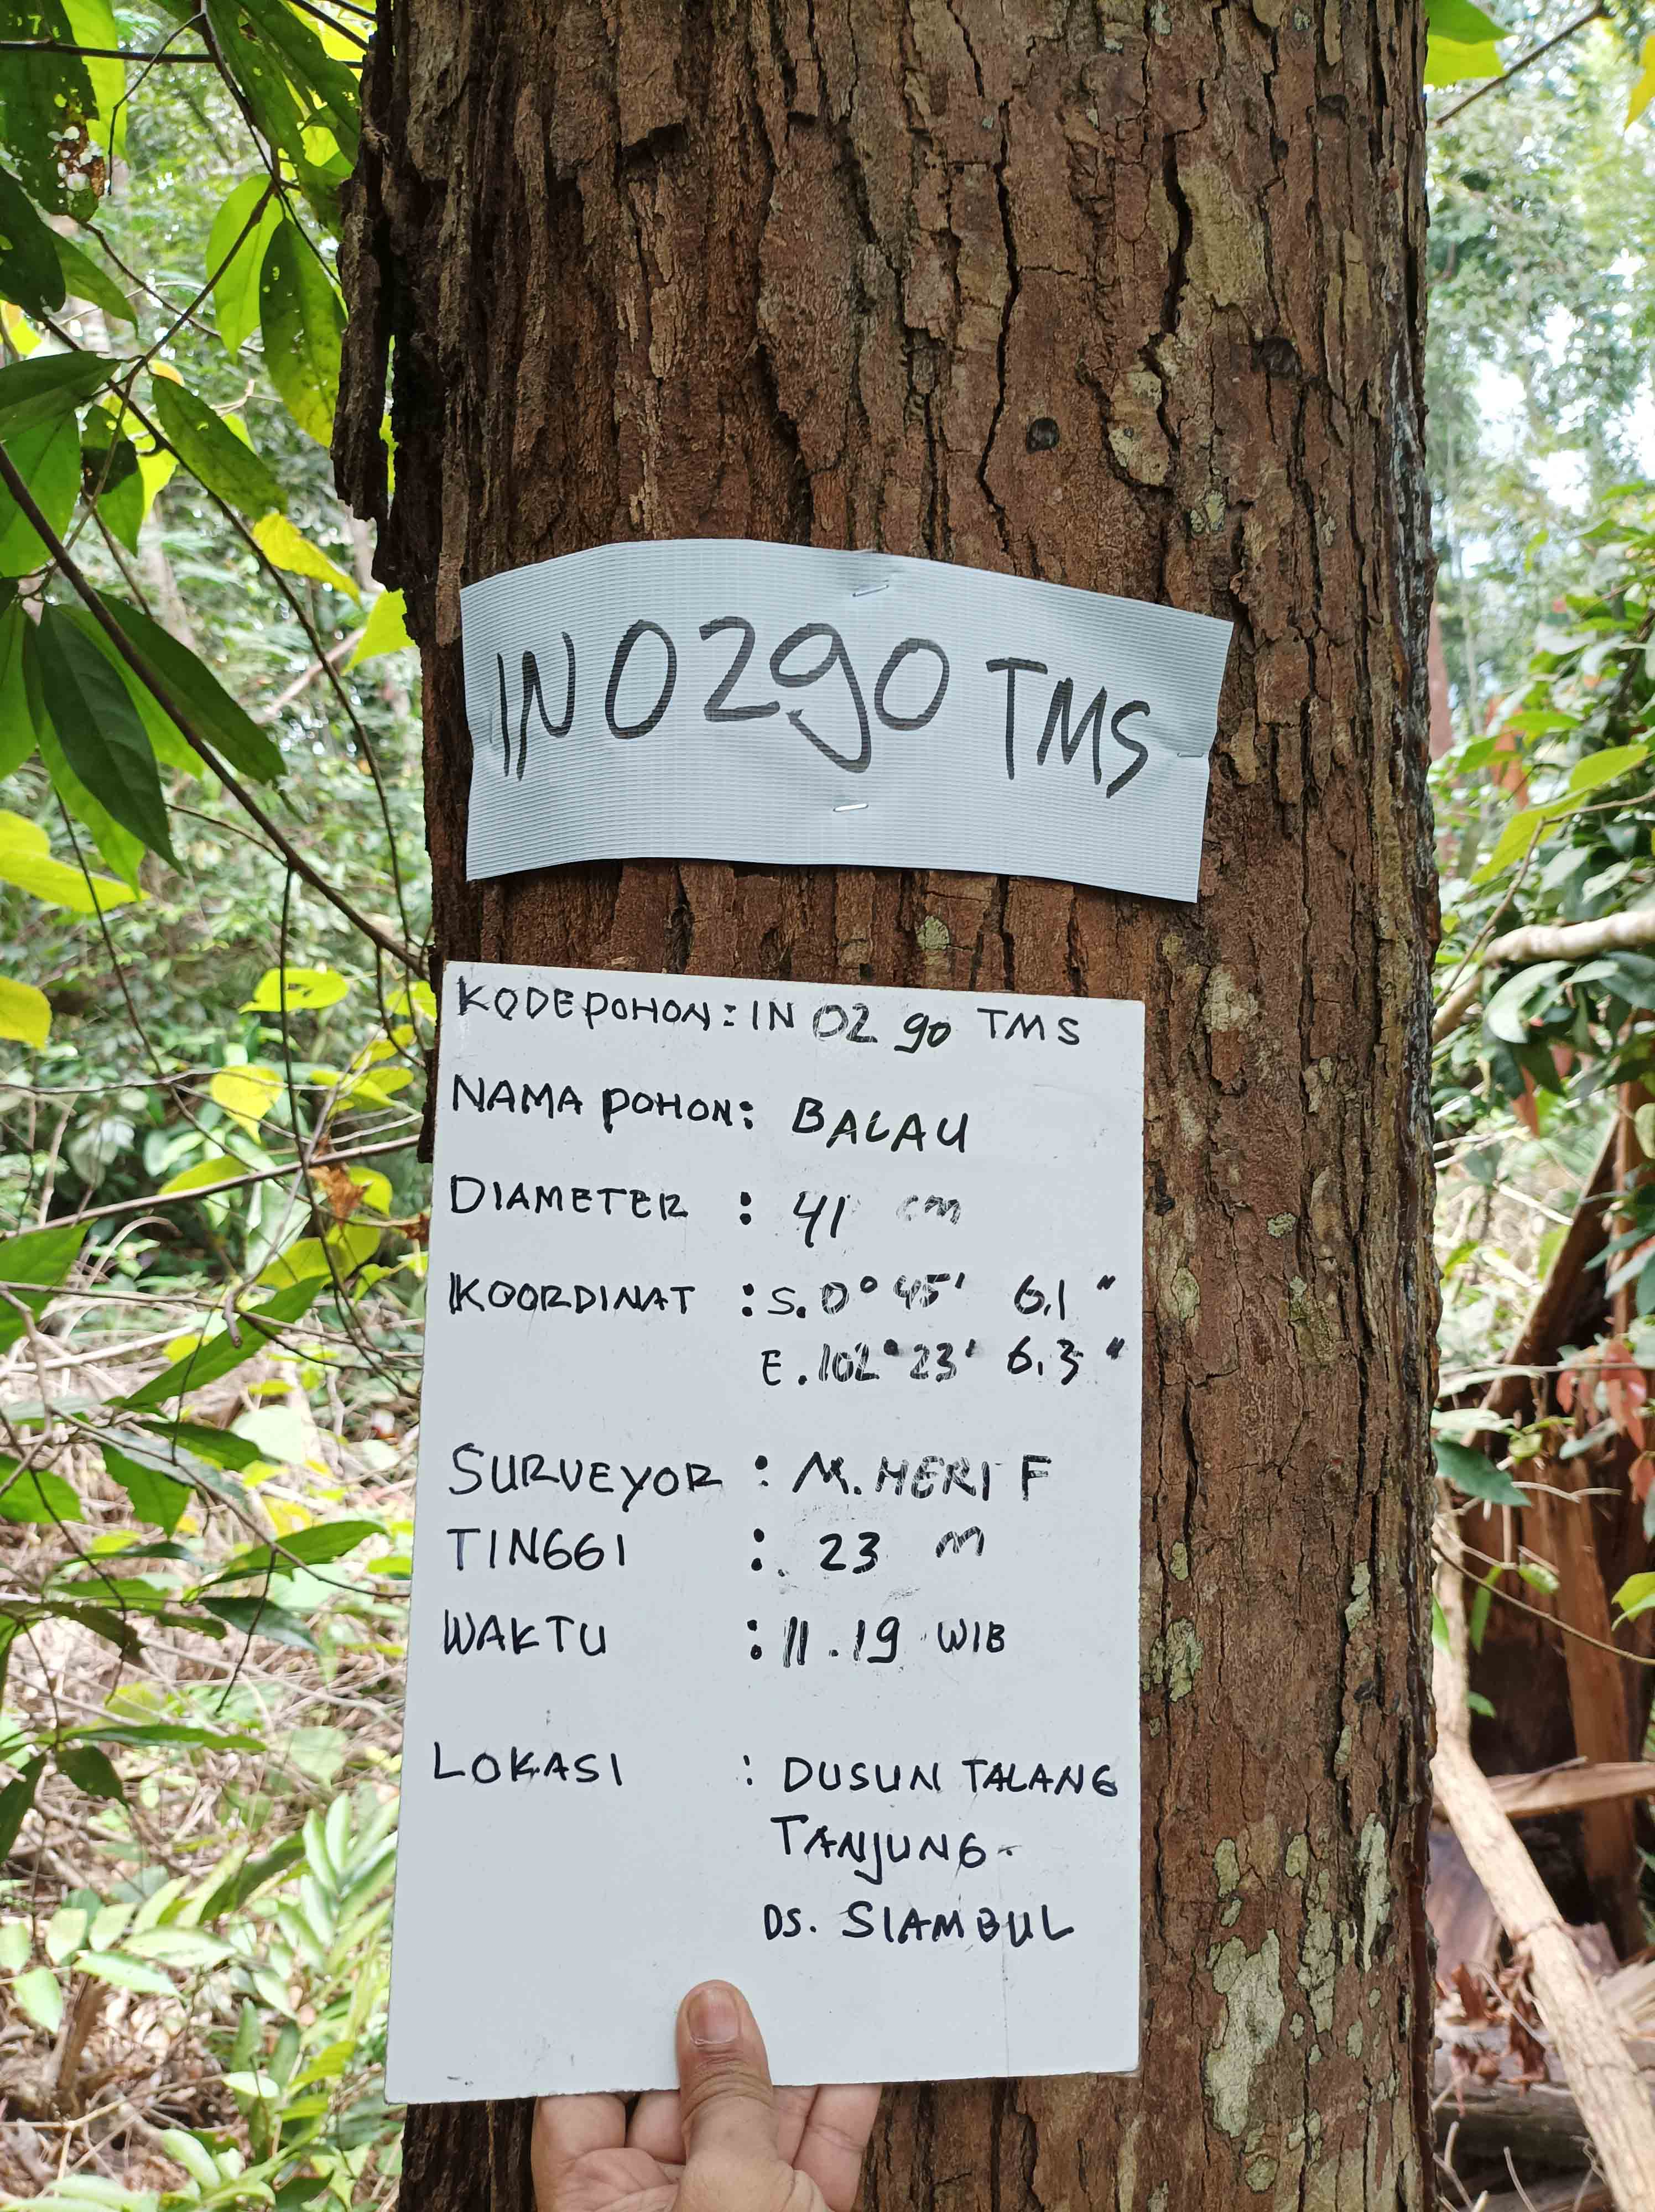 IN 0290 TMS
KODE POHON : IN 02 90 TMS
NAMA POHON : BALAU
DIAMETER : 41 cm
KOORDINAT : S. 0° 45' 6.1 "
E. 102° 23' 6.3 "
SURVEYOR : M. HERI F
TINGGI : 23 m
WAKTU : 11.19 WIB
LOKASI : DUSUN TALANG
TANJUNG -
DS. SIAMBUL